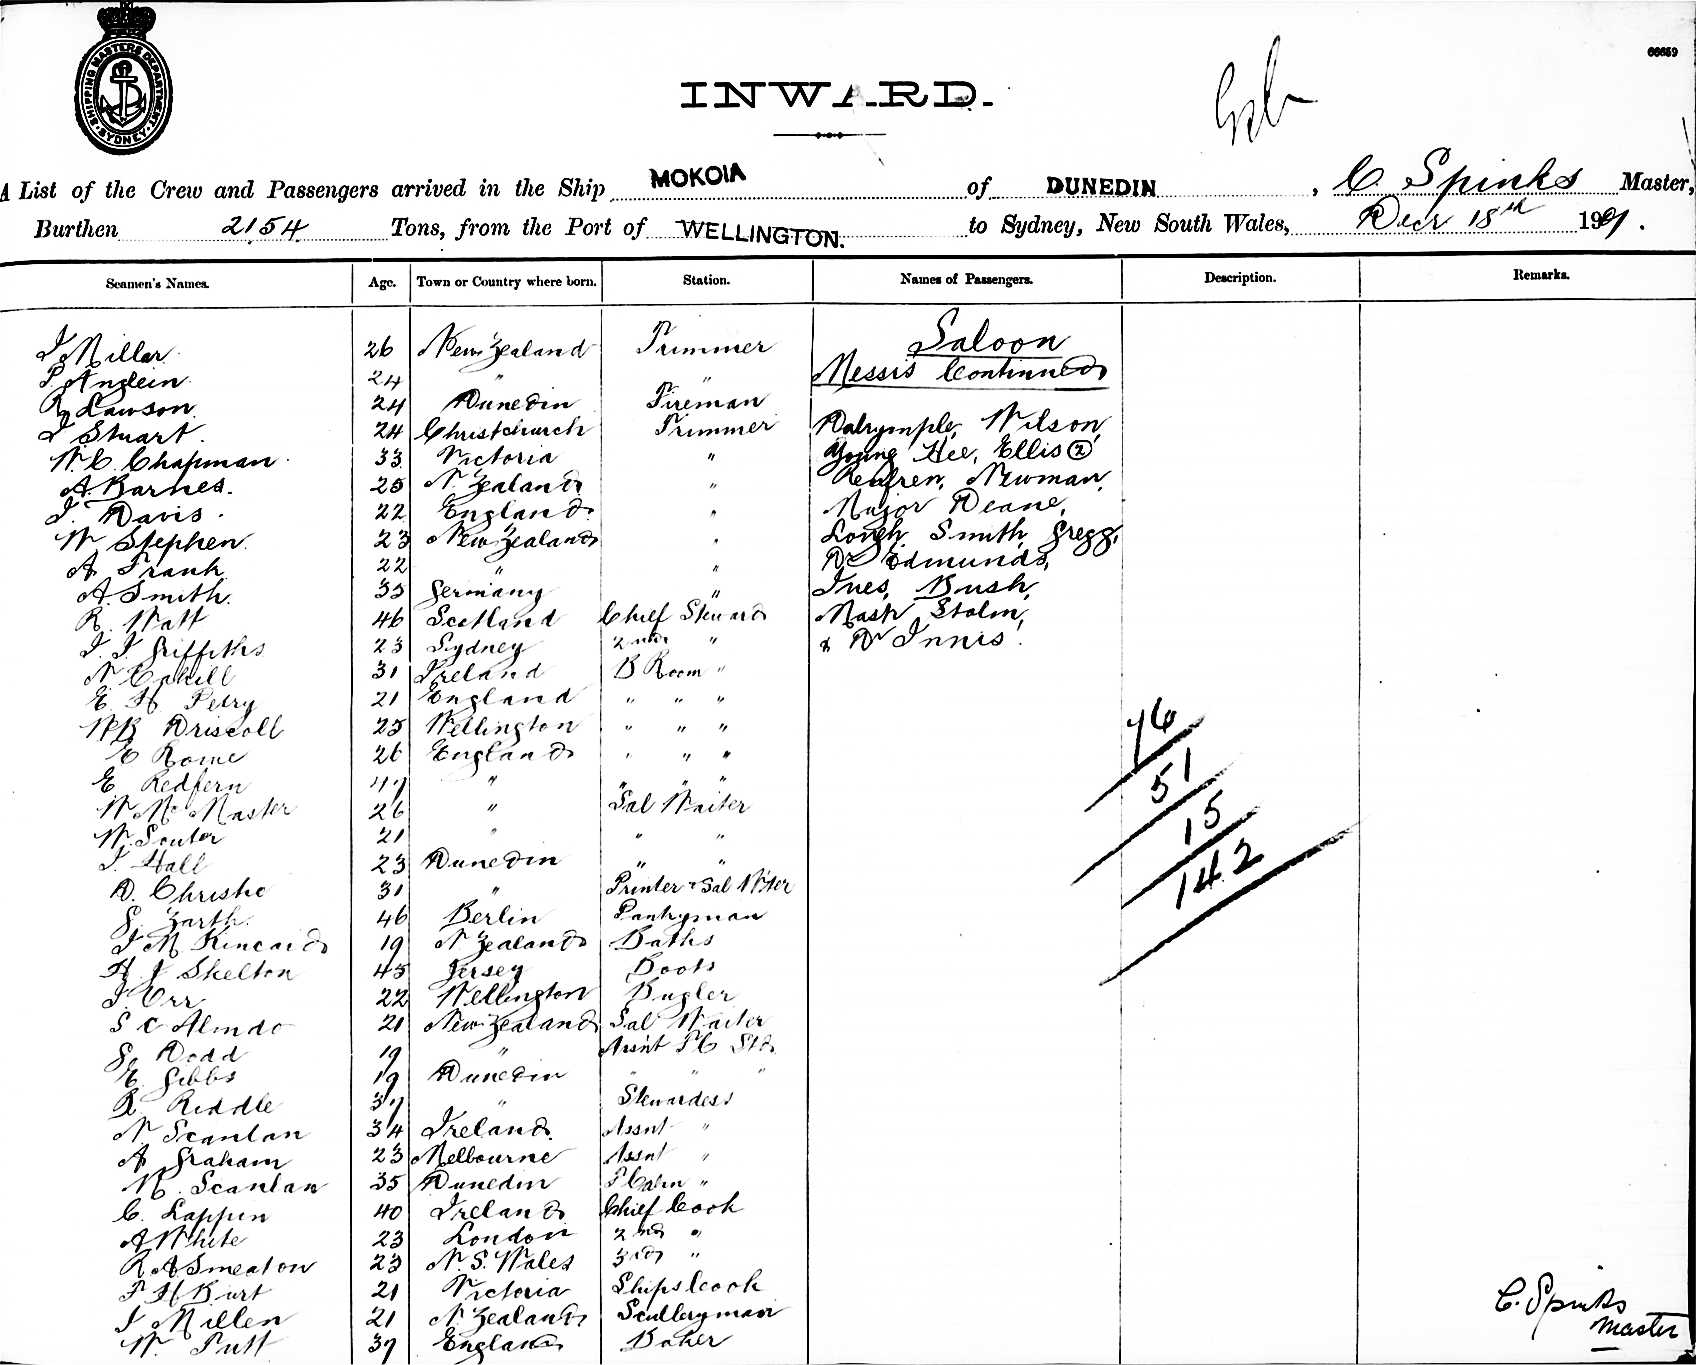 SHIPPING MASTERS DEPARTMENT SYDNEY
66659
INWARD.
A List of the Crew and Passengers arrived in the Ship MOKOIA of DUNEDIN, C. Spinks Master,
Burthen 2154 Tons, from the Port of WELLINGTON. to Sydney, New South Wales, Decr 18th 1901.
Seamen's Names. Age. Town or Country where born. Station. Names of Passengers. Description. Remarks.
J Millar 26 New Zealand Trimmer Saloon
P Anglein 24 " " Messrs Continued
R Lawson 24 Dunedin Fireman
J Stuart. 24 Christchurch Trimmer Dalrymple, Wilson,
W. C. Chapman 33 Victoria " Young Hee, Ellis (2)
A. Barnes. 25 N. Zealand " Renfren, Newman,
J. Davis. 22 England " Major Deane,
W Stephen. 23 New Zealand " Lough, Smith, Gregg,
A Frank 22 " " Dr Edmunds,
A. Smith. 35 Germany " Ines, Bush,
R. Watt 46 Scotland Chief Steward Mash, Stolm,
J. J. Griffiths 23 Sydney 2nd " & Dr Innis.
N Cahill 31 Ireland B Room "
E H Petry 21 England " " "
W B Driscoll 25 Wellington " " "
C Rome 26 England " " "
E Redfern 47 " " " "
W McMaster 26 " Sal Waiter
W. Souter 21 " " "
J. Hall 23 Dunedin " "
D. Christie 31 " Printer & Sal Wter
G. Zarth. 46 Berlin Pantryman
J M Kincaid 19 N Zealand Baths
H J Skelton 45 Jersey Boots
J. Orr 22 Wellington Bugler
S C Almdo 21 New Zealand Sal Waiter
G. Dodd 19 " Assnt F C Std
E. Gibbs 19 Dunedin " " "
R. Riddle 37 " Stewardess
N. Scanlan 34 Ireland Assnt "
A Graham 23 Melbourne Assnt "
M. Scanlan 35 Dunedin "
C. Lappin 40 Ireland Chief Cook
A White 23 London 2nd "
R A Smeaton 23 N. S. Wales 3rd "
F H Burt 21 Victoria Ships Cook
J Millen 21 N Zealand Sculleryman
W. Tutt 37 England Baker
76
51
15
142
C. Spinks
Master